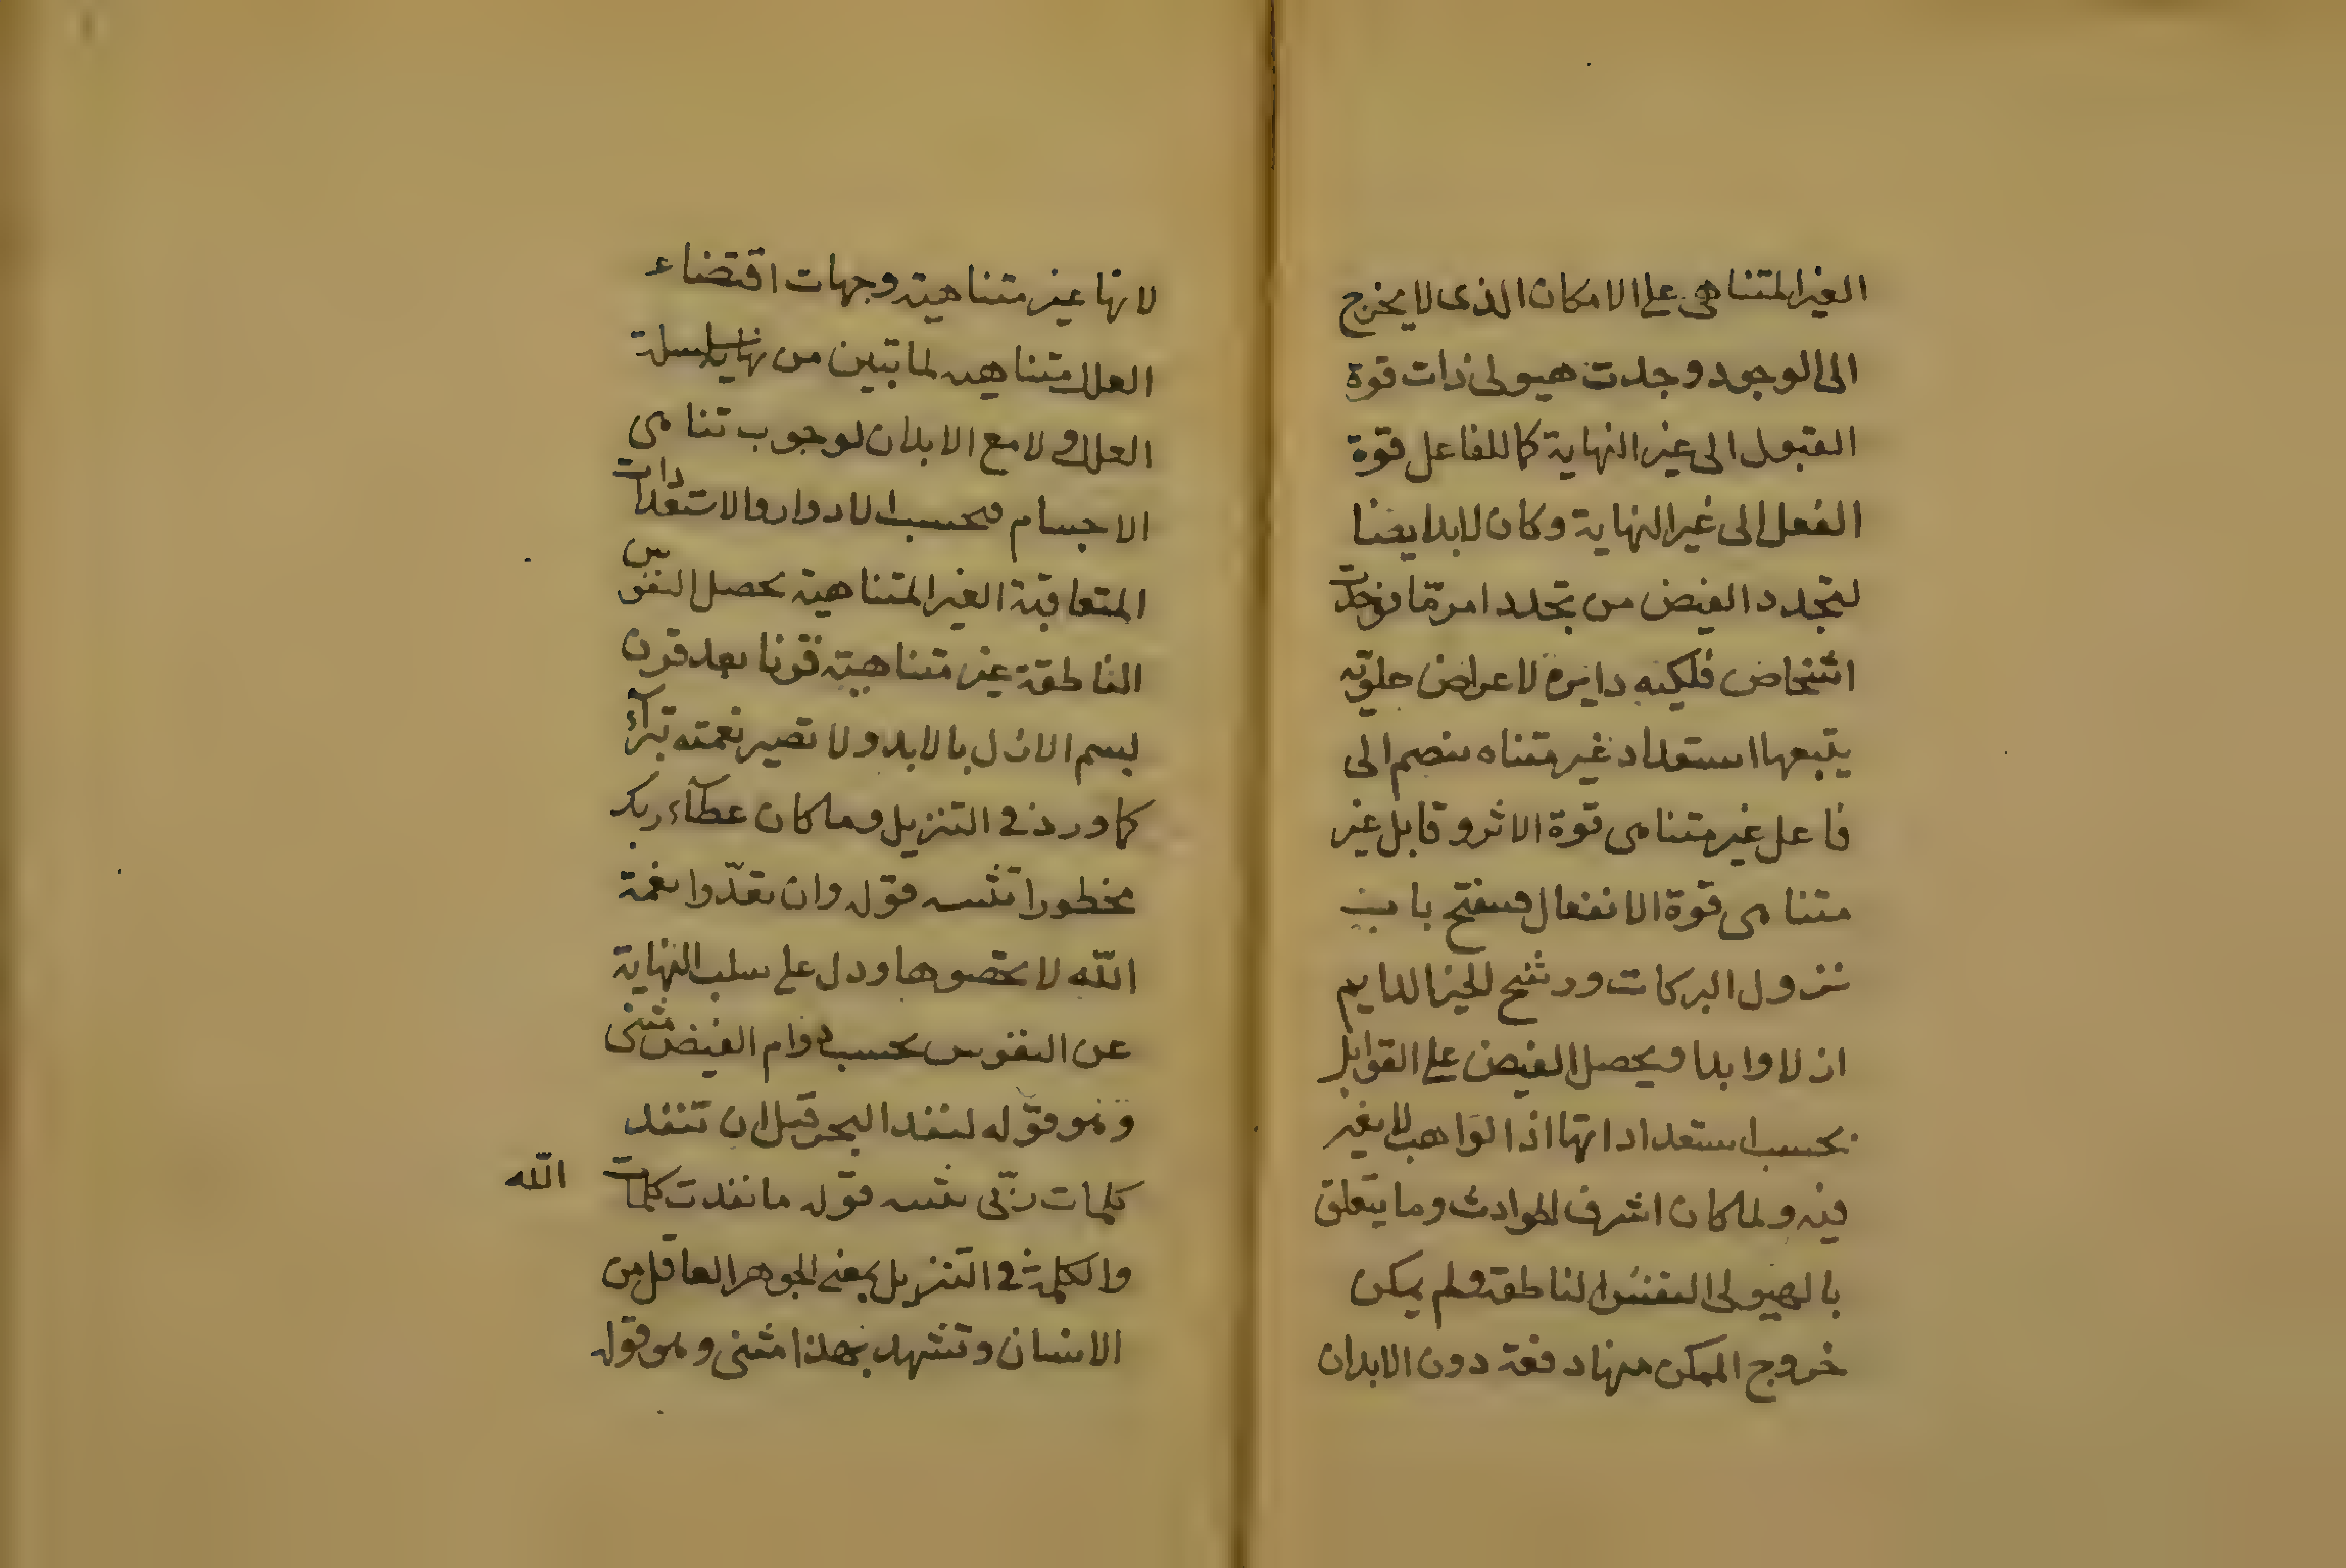 الغير المتناهى على الامكان الذى لا يخرج
الى الوجود وجدت هيولى ذات قوة
القبول الى غير النهاية كما للفاعل قوة
الفعل الى غير النهاية وكان لابد ايضا
لتجدد الفيض من تجدد امر ما فوجدت
اشخاص فلكيه دايرة لاعراض علوية
يتبعها استعداد غير متناه ينضم الى
فاعل غير متناهى قوة الاثر وقابل غير
متناهى قوة الانفعال فينفتح باب
نزول البركات ورشح الخير الدايم
ازلا وابدا ويحصل الفيض على القوابل
بحسب استعداداتها اذ الواهب لا يغير
فيه ولما كان اشرف الحوادث وما يتعلق
بالهيولى النفس الناطقة ولم يمكن
خروج الممكن منها دفعة دون الابدان
لانها غير متناهية وجهات اقتضاء
العلل متناهيه لما تبين من نهاية سلسلة
العلل ولا مع الابدان لوجوب تناهى
الاجسام فحسب الادوار والاستعدادات
المتعاقبة الغير المتناهية يحصل النفوس
الناطقة غير متناهية قرنا بعد قرن
ليسم الازل بالابد ولا تصير نعمته بتراء
كما ورد فى التنزيل وما كان عطآء ربك
محظورا تثنيه قوله وان تعدّوا نعمة
الله لا تحصوها ودل على سلب النهاية
عن النفوس بحسب دوام الفيض مثنى
وهو قوله لنفد البحر قبل ان تنفد
كلمات ربّى تثنيه قوله ما نفدت كلمات الله
والكلمة فى التنزيل بمعنى الجوهر العاقل من
الانسان وتشهد بهذا مثنى وهو قوله